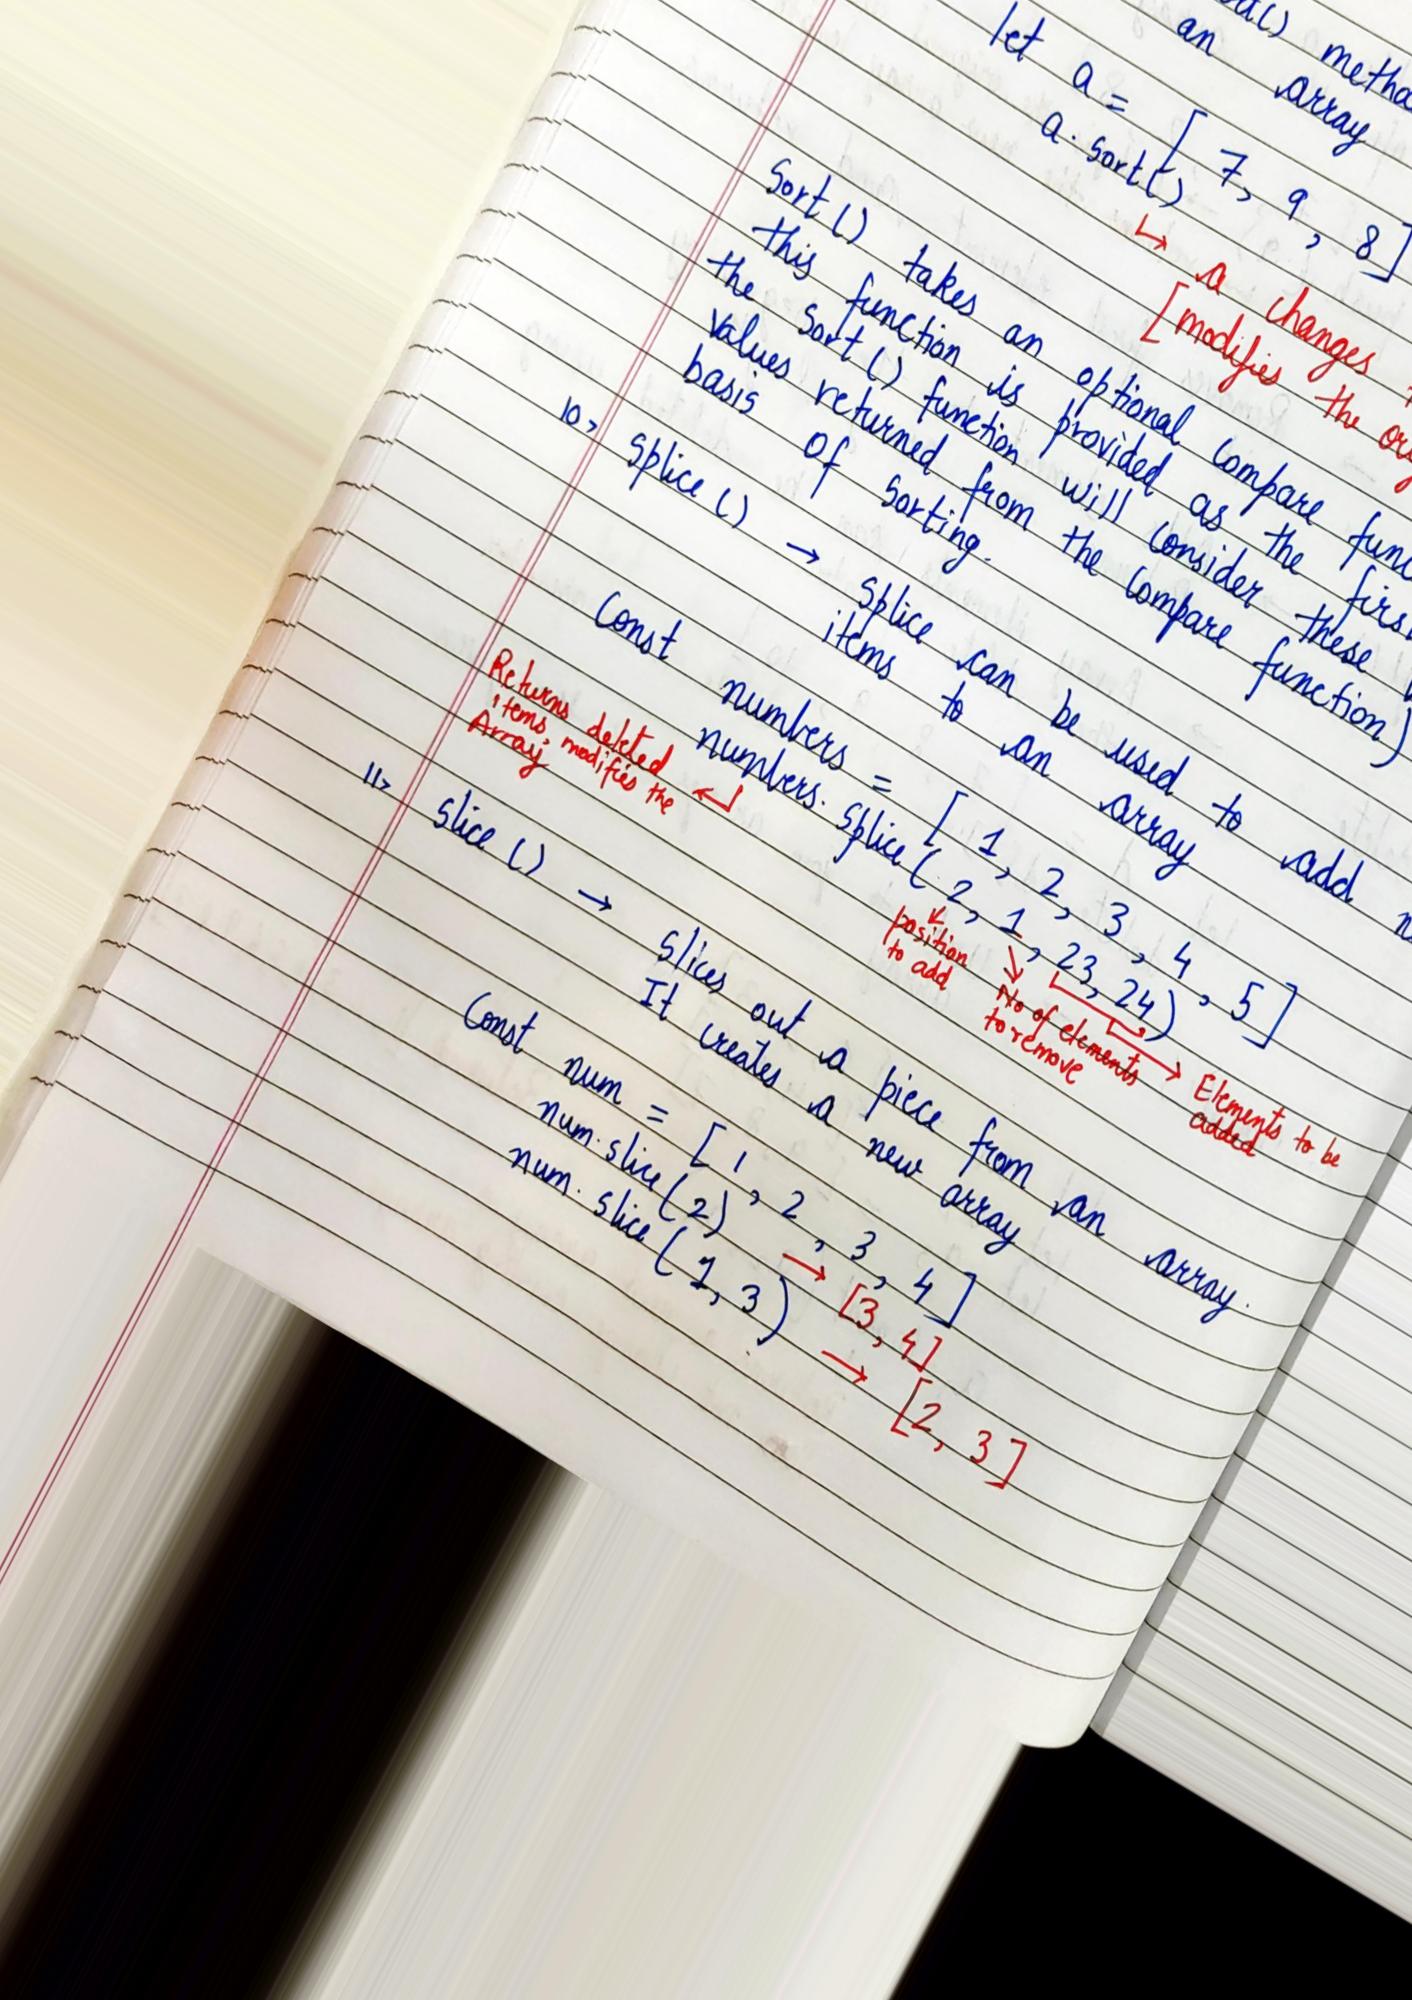 method
an array
let a = [ 7, 9, 8 ]
a.sort()
↳ a changes
[modifies the
sort() takes an optional compare
this function is provided as the
the sort() function will consider these
values returned from the compare function)
basis of sorting.
10> splice() → splice can be used to add
items to an array
Const numbers = [ 1, 2, 3, 4, 5 ]
numbers.splice(2, 1, 23, 24)
Returns deleted
items, modifies the
Array
position
to add
No of elements
to remove
Elements to be
added
11> slice() → slices out a piece from an array.
It creates a new array
Const num = [ 1, 2, 3, 4 ]
num.slice(2) → [3, 4]
num.slice(1, 3) → [2, 3]